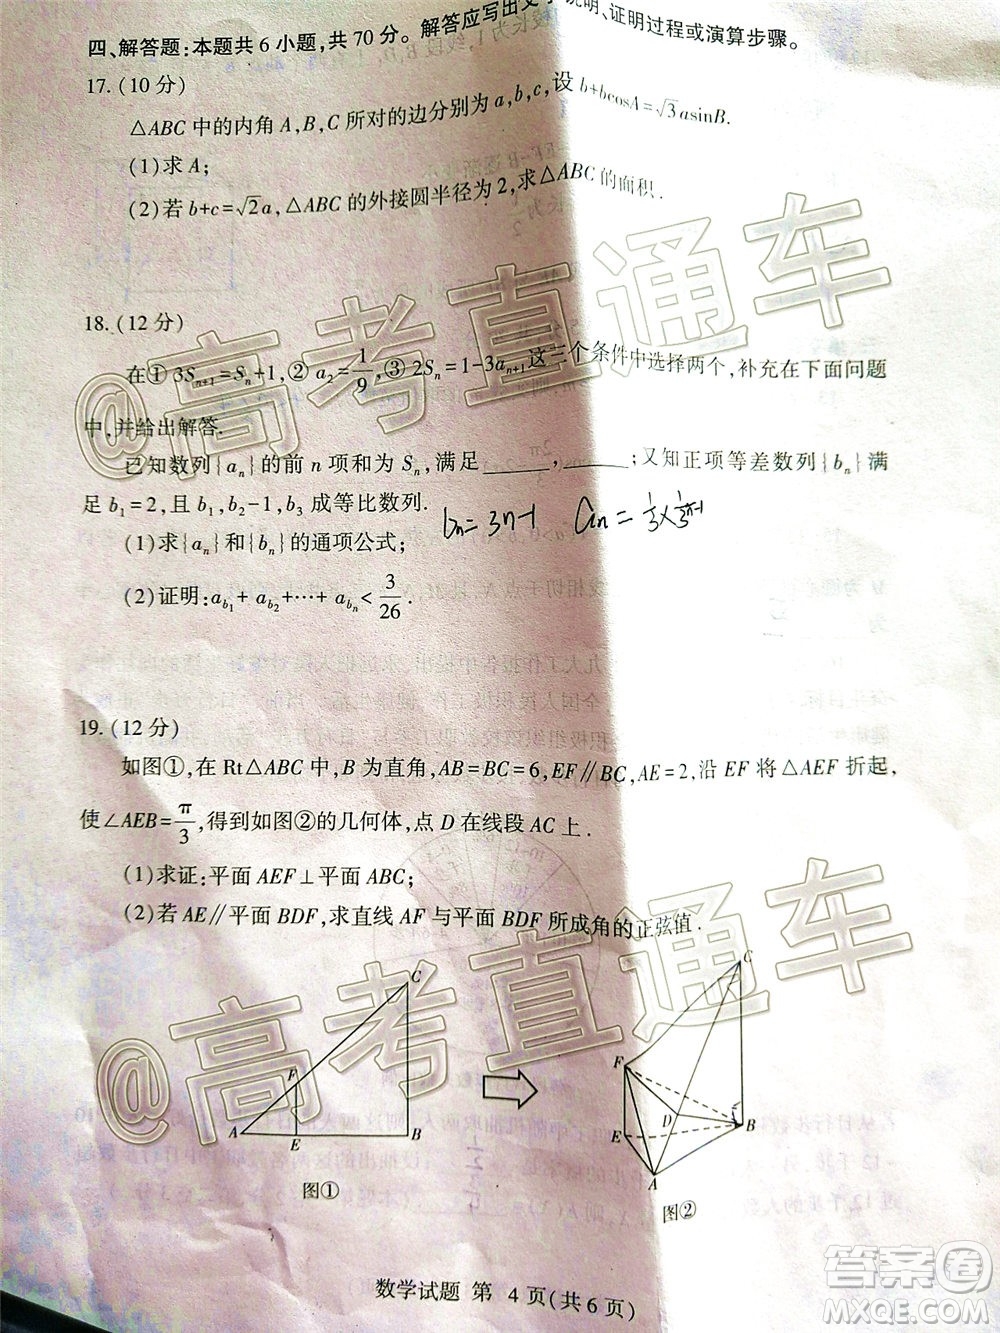 四、解答题:本题共6小题,共70分。解答应写出文字说明、证明过程或演算步骤。
17.(10分)
△ABC中的内角A,B,C所对的边分别为a,b,c,设b+bcosA=√3asinB.
(1)求A;
(2)若b+c=√2a,△ABC的外接圆半径为2,求△ABC的面积.
18.(12分)
在①3Sₙ₊₁=Sₙ+1,②a₂=1/9,③2Sₙ=1-3aₙ₊₁这三个条件中选择两个,补充在下面问题
中,并给出解答.
已知数列{aₙ}的前n项和为Sₙ,满足______,______;又知正项等差数列{bₙ}满
足b₁=2,且b₁,b₂-1,b₃成等比数列.
bn=3n-1 an=1/3×1/3ⁿ⁻¹
(1)求{aₙ}和{bₙ}的通项公式;
(2)证明:a_{b₁}+a_{b₂}+…+a_{bₙ}<3/26.
19.(12分)
如图①,在Rt△ABC中,B为直角,AB=BC=6,EF∥BC,AE=2,沿EF将△AEF折起,
使∠AEB=π/3,得到如图②的几何体,点D在线段AC上.
(1)求证:平面AEF⊥平面ABC;
(2)若AE∥平面BDF,求直线AF与平面BDF所成角的正弦值.
C
F
A
E
B
图①
C
F
E
D
B
A
图②
数学试题 第4页(共6页)
@高考直通车
@高考直通车
答案圈
MXQE.COM